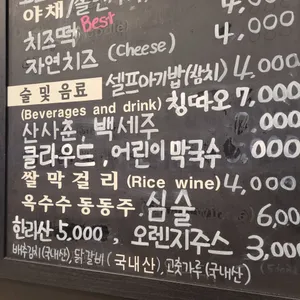 치즈떡 Best 4,000
자연치즈 (Cheese) 4,000
술 및 음료 셀프아기밥(참치) 4,000
(Beverages and drink) 칭따오 7,000
산사춘, 백세주
클라우드, 어린이 막국수 000
쌀 막걸리 (Rice wine) 4,000
옥수수 동동주, 심술 6,000
한라산 5,000, 오렌지주스 3,000
배추김치(국내산), 닭갈비(국내산), 고춧가루(국내산)